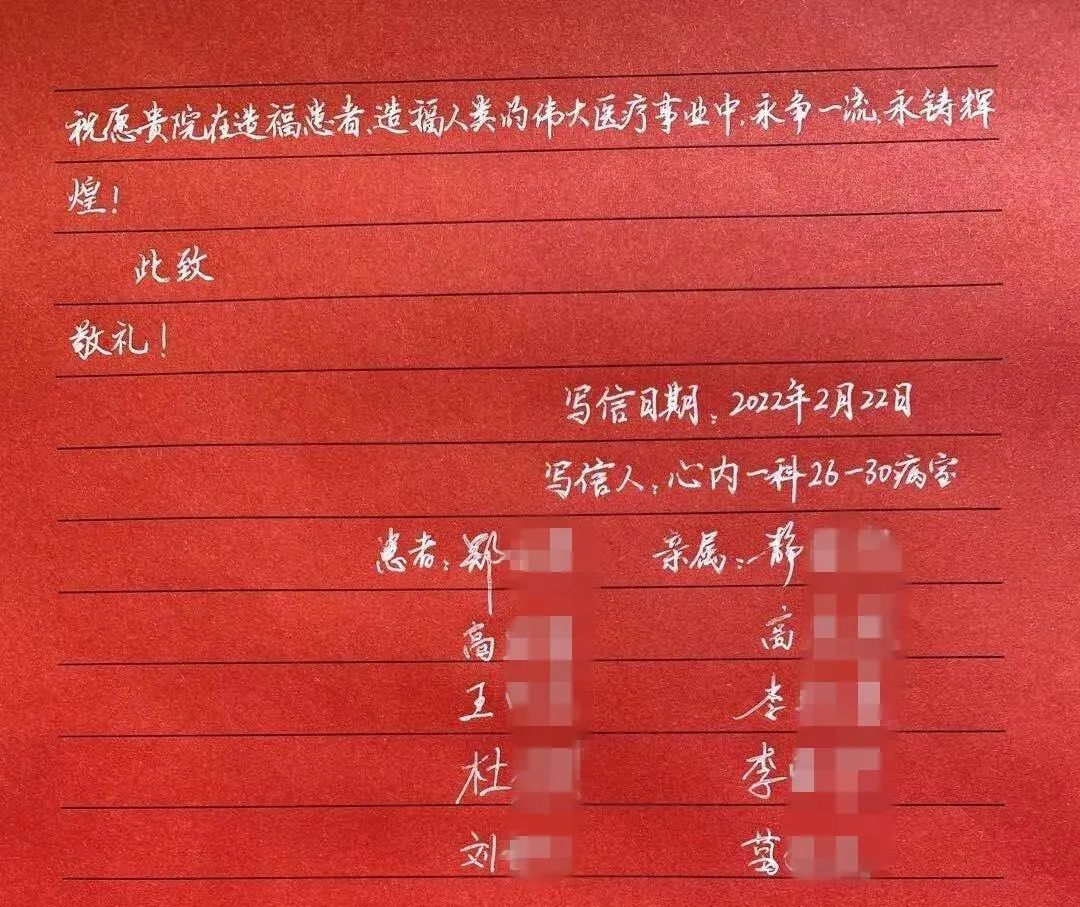 祝愿贵院在造福患者、造福人类的伟大医疗事业中,永争一流,永铸辉
煌!
此致
敬礼!
写信日期:2022年2月22日
写信人:心内一科26-30病室
患者:郑 亲属:静
高 高
王 李
杜 李
刘 葛